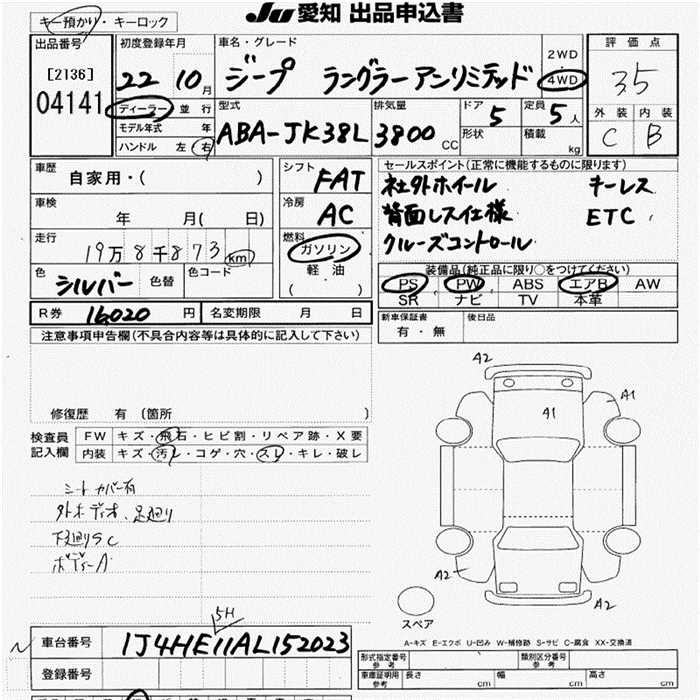 キー預かり・キーロック
JU 愛知 出品申込書
出品番号 [2136] 04141
初度登録年月 22 10月
ディーラー 並行
モデル年式 年
ハンドル 左 右
車名・グレード ジープ ラングラーアンリミテッド
2WD 4WD
型式 ABA-JK38L
排気量 3800 CC
ドア 5 形状
定員 5人 積載 kg
評価点 35
外装 内装
C B
車歴 自家用・( )
車検 年 月( 日)
走行 19万8千873 km
色 シルバー 色替 色コード
シフト FAT
冷房 AC
燃料 ガソリン 軽油 ( )
セールスポイント(正常に機能するものに限ります)
社外ホイール キーレス
背面レス仕様 ETC
クルーズコントロール
装備品(純正品に限り○をつけてください)
PS PW ABS エアB AW
SR ナビ TV 本革
R券 16,020円 名変期限 月 日
新車保証書 有・無 後日品
注意事項申告欄(不具合内容等は具体的に記入して下さい)
修復歴 有 (箇所 )
検査員記入欄
FW キズ・飛石・ヒビ割・リペア跡・X要
内装 キズ・汚レ・コゲ・穴・スレ・キレ・破レ
シートカバー有
外ホ ディオ、足廻り
下廻りSC
ボディーA
A2
A1
A1
A2
A2
スペア
A-キズ E-エクボ U-凹み W-補修跡 S-サビ C-腐食 XX-交換済
5H
車台番号 1J4HE11AL152023
登録番号
形式指定番号 参考 類別区分番号 参考
車庫証明用 参考 長さ cm 幅 cm 高さ cm